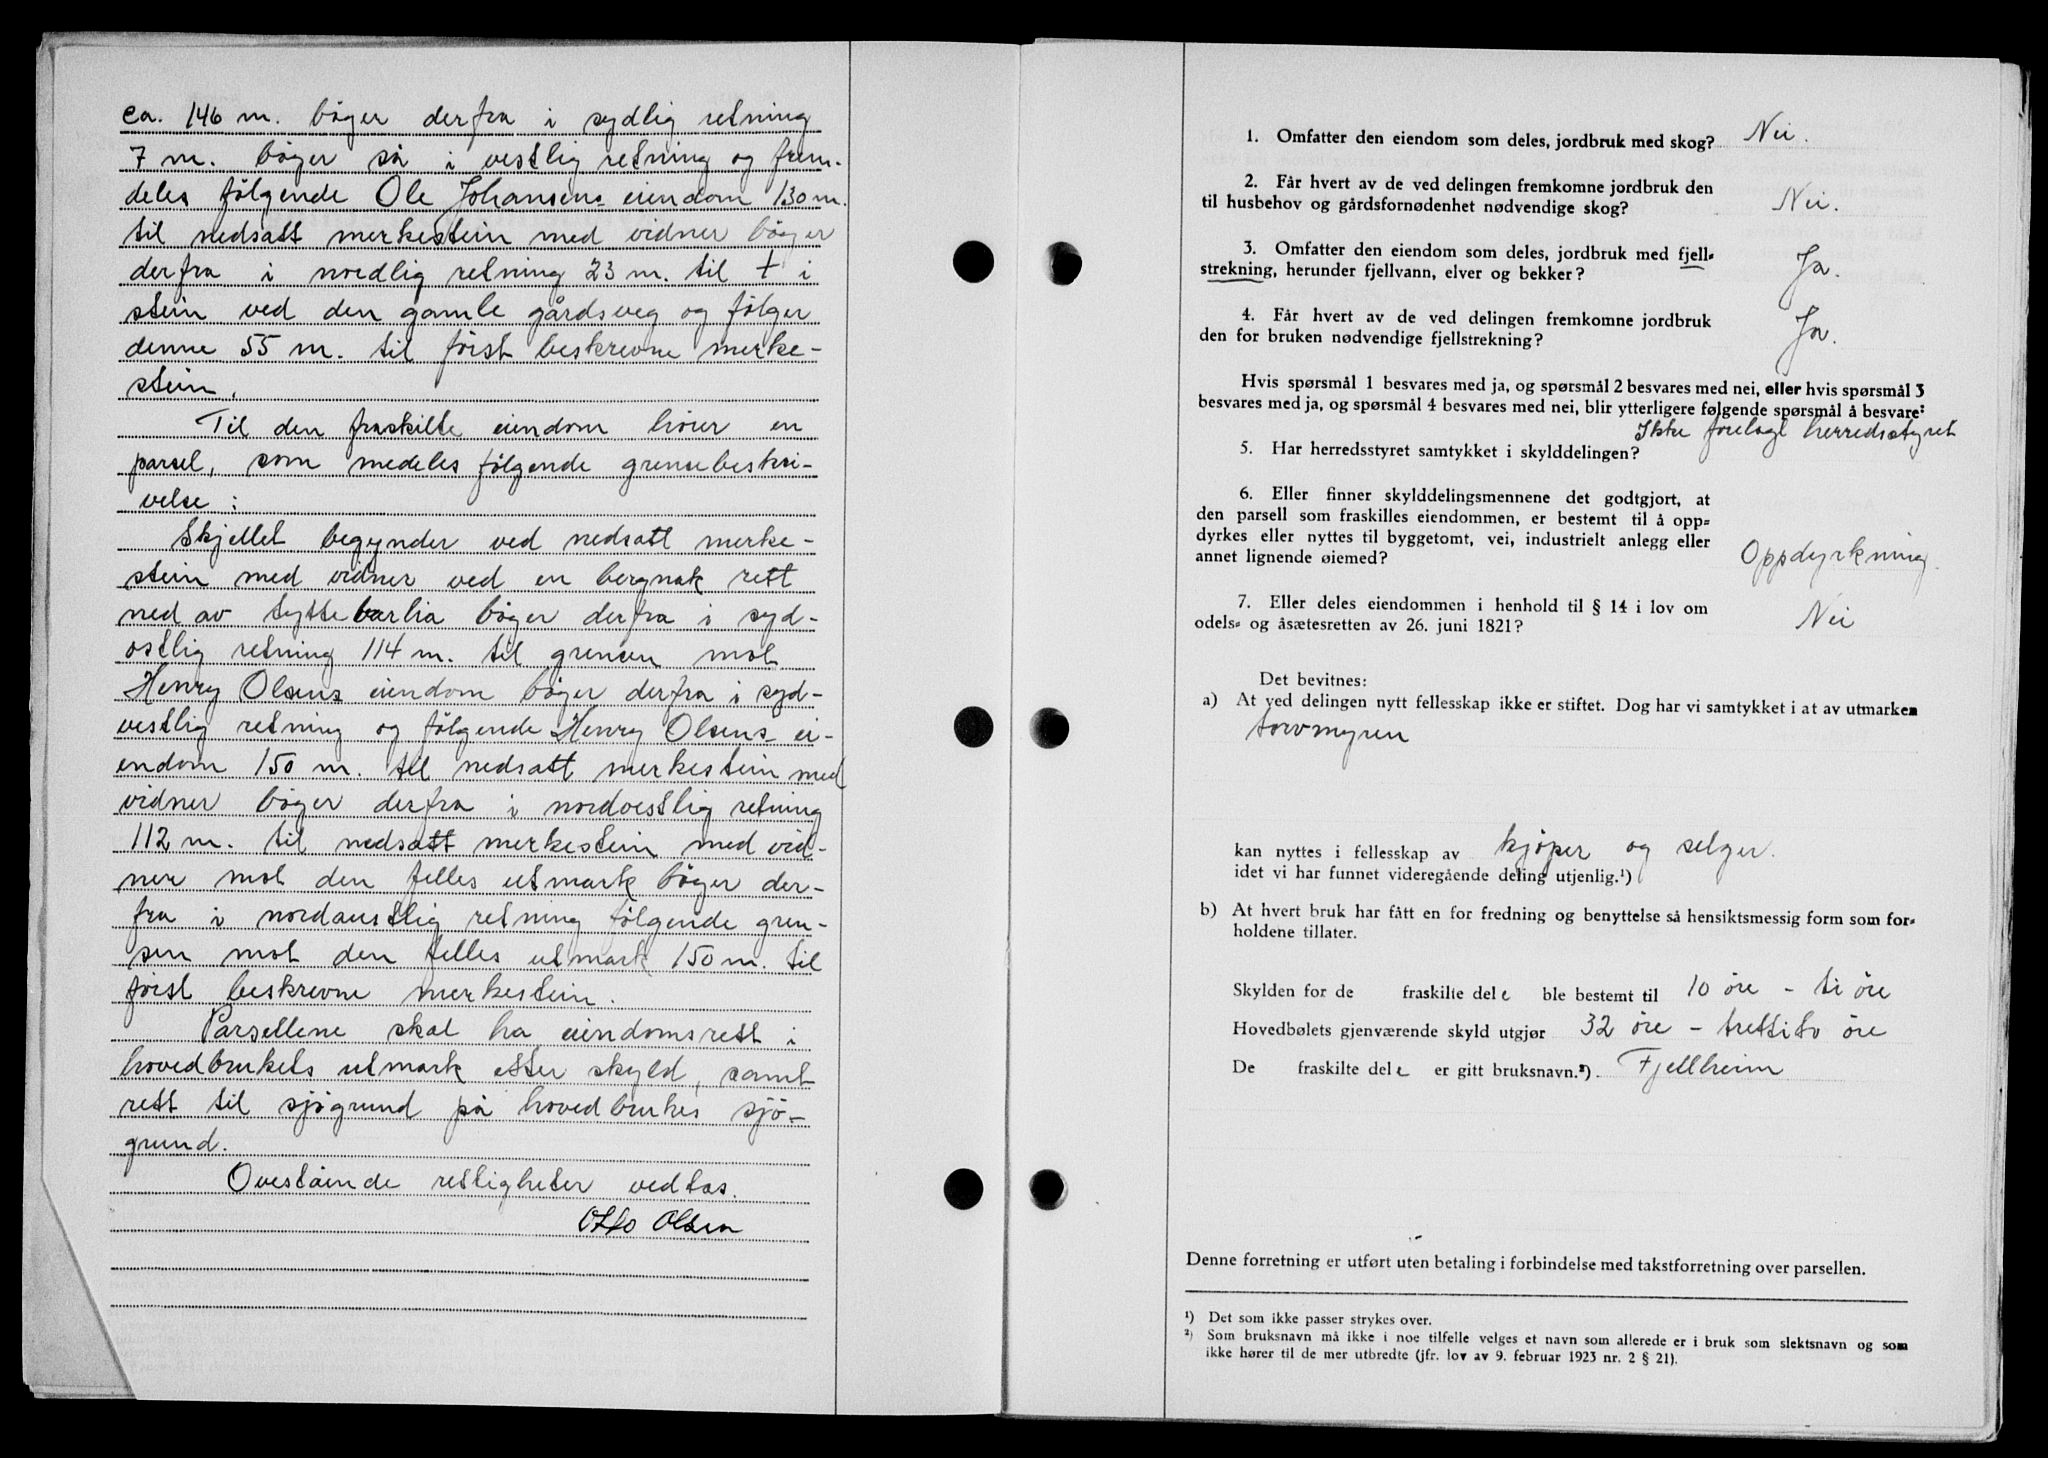 ca. 146 m. bøger derfra i sydlig retning
7 m. bøger så i vestlig retning og frem-
deles følgende Ole Johansens eiendom 130 m.
til nedsatt merkestein med vidner bøger
derfra i nordlig retning 23 m. til + i
stein ved den gamle gårdsveg og følger
denne 55 m. til først beskrevne merke-
stein.
Til den fraskilte eiendom hører en
parsel, som medeles følgende grensebeskri-
velse:
Skjellet begynder ved nedsatt merke-
stein med vidner ved en bergnak rett
ned av tyttebærlia bøger derfra i syd-
ostlig retning 114 m. til grensen mot
Henry Olsens eiendom bøger derfra i syd-
vestlig retning og følgende Henry Olsens ei-
endom 150 m. til nedsatt merkestein med
vidner bøger derfra i nordvestlig retning
112 m. til nedsatt merkestein med vid-
ner mot den felles utmark bøger der-
fra i nordaustlig retning følgende gren-
sen mot den felles utmark 150 m. til
først beskrevne merkestein.
Parsellene skal ha eiendomsrett i
hovedbrukets utmark etter skyld, samt
rett til sjøgrund på hovedbrukes sjø-
grund.
Ovestående rettigheter vedtas.
Otto Olsen
1. Omfatter den eiendom som deles, jordbruk med skog? Nei.
2. Får hvert av de ved delingen fremkomne jordbruk den
til husbehov og gårdsfornødenhet nødvendige skog? Nei.
3. Omfatter den eiendom som deles, jordbruk med fjell-
strekning, herunder fjellvann, elver og bekker? Ja.
4. Får hvert av de ved delingen fremkomne jordbruk
den for bruken nødvendige fjellstrekning? Ja.
Hvis spørsmål 1 besvares med ja, og spørsmål 2 besvares med nei, eller hvis spørsmål 3
besvares med ja, og spørsmål 4 besvares med nei, blir ytterligere følgende spørsmål å besvare:
Ikke forelagt herredsstyret
5. Har herredsstyret samtykket i skylddelingen?
6. Eller finner skylddelingsmennene det godtgjort, at
den parsell som fraskilles eiendommen, er bestemt til å opp-
dyrkes eller nyttes til byggetomt, vei, industrielt anlegg eller
annet lignende øiemed? Oppdyrkning.
7. Eller deles eiendommen i henhold til § 14 i lov om
odels- og åsætesretten av 26. juni 1821? Nei
Det bevitnes:
a) At ved delingen nytt fellesskap ikke er stiftet. Dog har vi samtykket i at av utmarken
torvmyren
kan nyttes i fellesskap av kjøper og selger.
idet vi har funnet videregående deling utjenlig.¹)
b) At hvert bruk har fått en for fredning og benyttelse så hensiktsmessig form som for-
holdene tillater.
Skylden for de fraskilte dele ble bestemt til 10 øre - ti øre
Hovedbølets gjenværende skyld utgjør 32 øre - trettito øre
De fraskilte dele er gitt bruksnavn.²) Fjellheim
Denne forretning er utført uten betaling i forbindelse med takstforretning over parsellen.
¹) Det som ikke passer strykes over.
²) Som bruksnavn må ikke i noe tilfelle velges et navn som allerede er i bruk som slektsnavn og som
ikke hører til de mer utbredte (jfr. lov av 9. februar 1923 nr. 2 § 21).